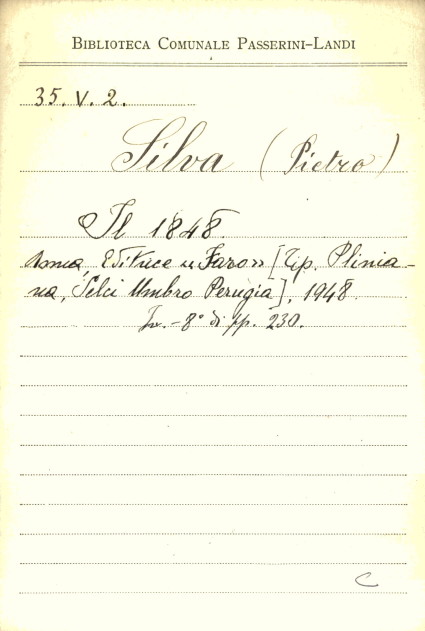 BIBLIOTECA COMUNALE PASSERINI-LANDI
35. V. 2.
Silva (Pietro)
Il 1848.
Roma, Editrice «Faro» [Tip. Plinia-
na, Selci Umbro Perugia], 1948.
In-8° di pp. 230.
C